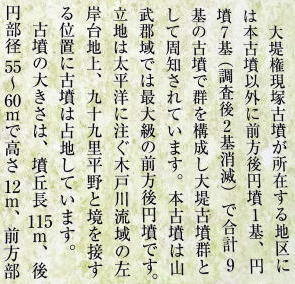 大堤権現塚古墳が所在する地区に
は本古墳以外に前方後円墳1基、円
墳7基(調査後2基消滅)で合計9
基の古墳で群を構成し大堤古墳群と
して周知されています。本古墳は山
武郡域では最大級の前方後円墳です。
立地は太平洋に注ぐ木戸川流域の左
岸台地上、九十九里平野と境を接す
る位置に古墳は占地しています。
古墳の大きさは、墳丘長115m、後
円部径55~60mで高さ12m、前方部